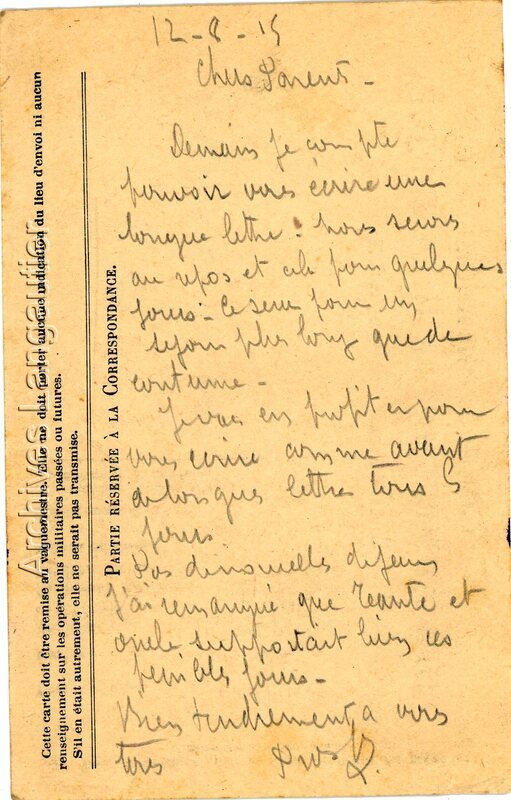 12-8-15
Chers Parents -
Demain je compte
pouvoir vous écrire une
longue lettre. nous serons
au repos et cela pour quelques
jours - ce sera pour un
séjour plus long que de
coutume -
Je vais en profiter pour
vous écrire comme avant
de longues lettre tous
jours
Pas de nouvelles de
J'ai remarqué que tante et
oncle supportait bien ces
penibles jours -
Bien tendrement a vous
tous
PARTIE RÉSERVÉE À LA CORRESPONDANCE.
Cette carte doit être remise au vaguemestre. Elle ne doit porter aucune indication du lieu d'envoi ni aucun
renseignement sur les opérations militaires passées ou futures.
S'il en était autrement, elle ne serait pas transmise.
Archives Langautier